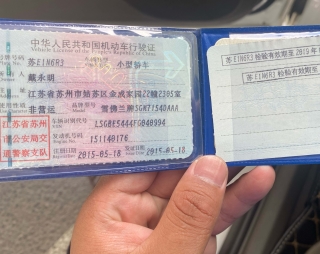 中华人民共和国机动车行驶证
Vehicle License of the People's Republic of China
号牌号码 苏E1N6R3 车辆类型 小型轿车
戴永明
江苏省苏州市姑苏区金成家园22幢2305室
使用性质 非营运 品牌型号 雪佛兰牌SGM7154DAAA
江苏省苏州
市公安局交
通警察支队
车辆识别代号 LSGBE5444FG040994
发动机号码 151140176
注册日期 2015-05-18 发证日期 2015-05-18
苏E1N6R3 检验有效期至 2019年
苏E1N6R3 检验有效期至